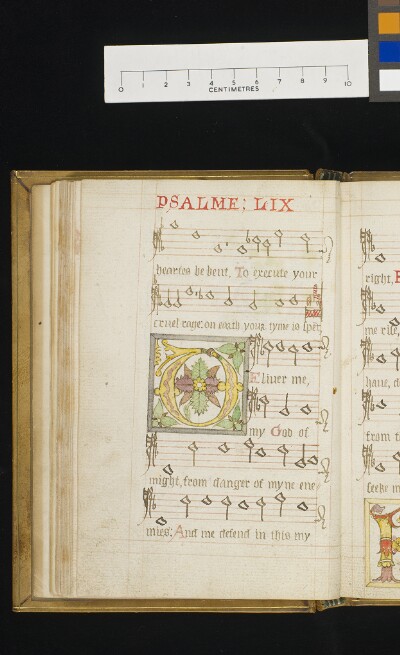 0 1 2 3 4 5 6 7 8 9 10
CENTIMETRES
PSALME: LIX
heartes be bent, To execute your
cruel rage: on earth your tyme is spēt
Eliuer me,
my God of
might, from danger of myne ene
mies: And me defend in this my
right,
me rise,
haue, d
from t
seeke m